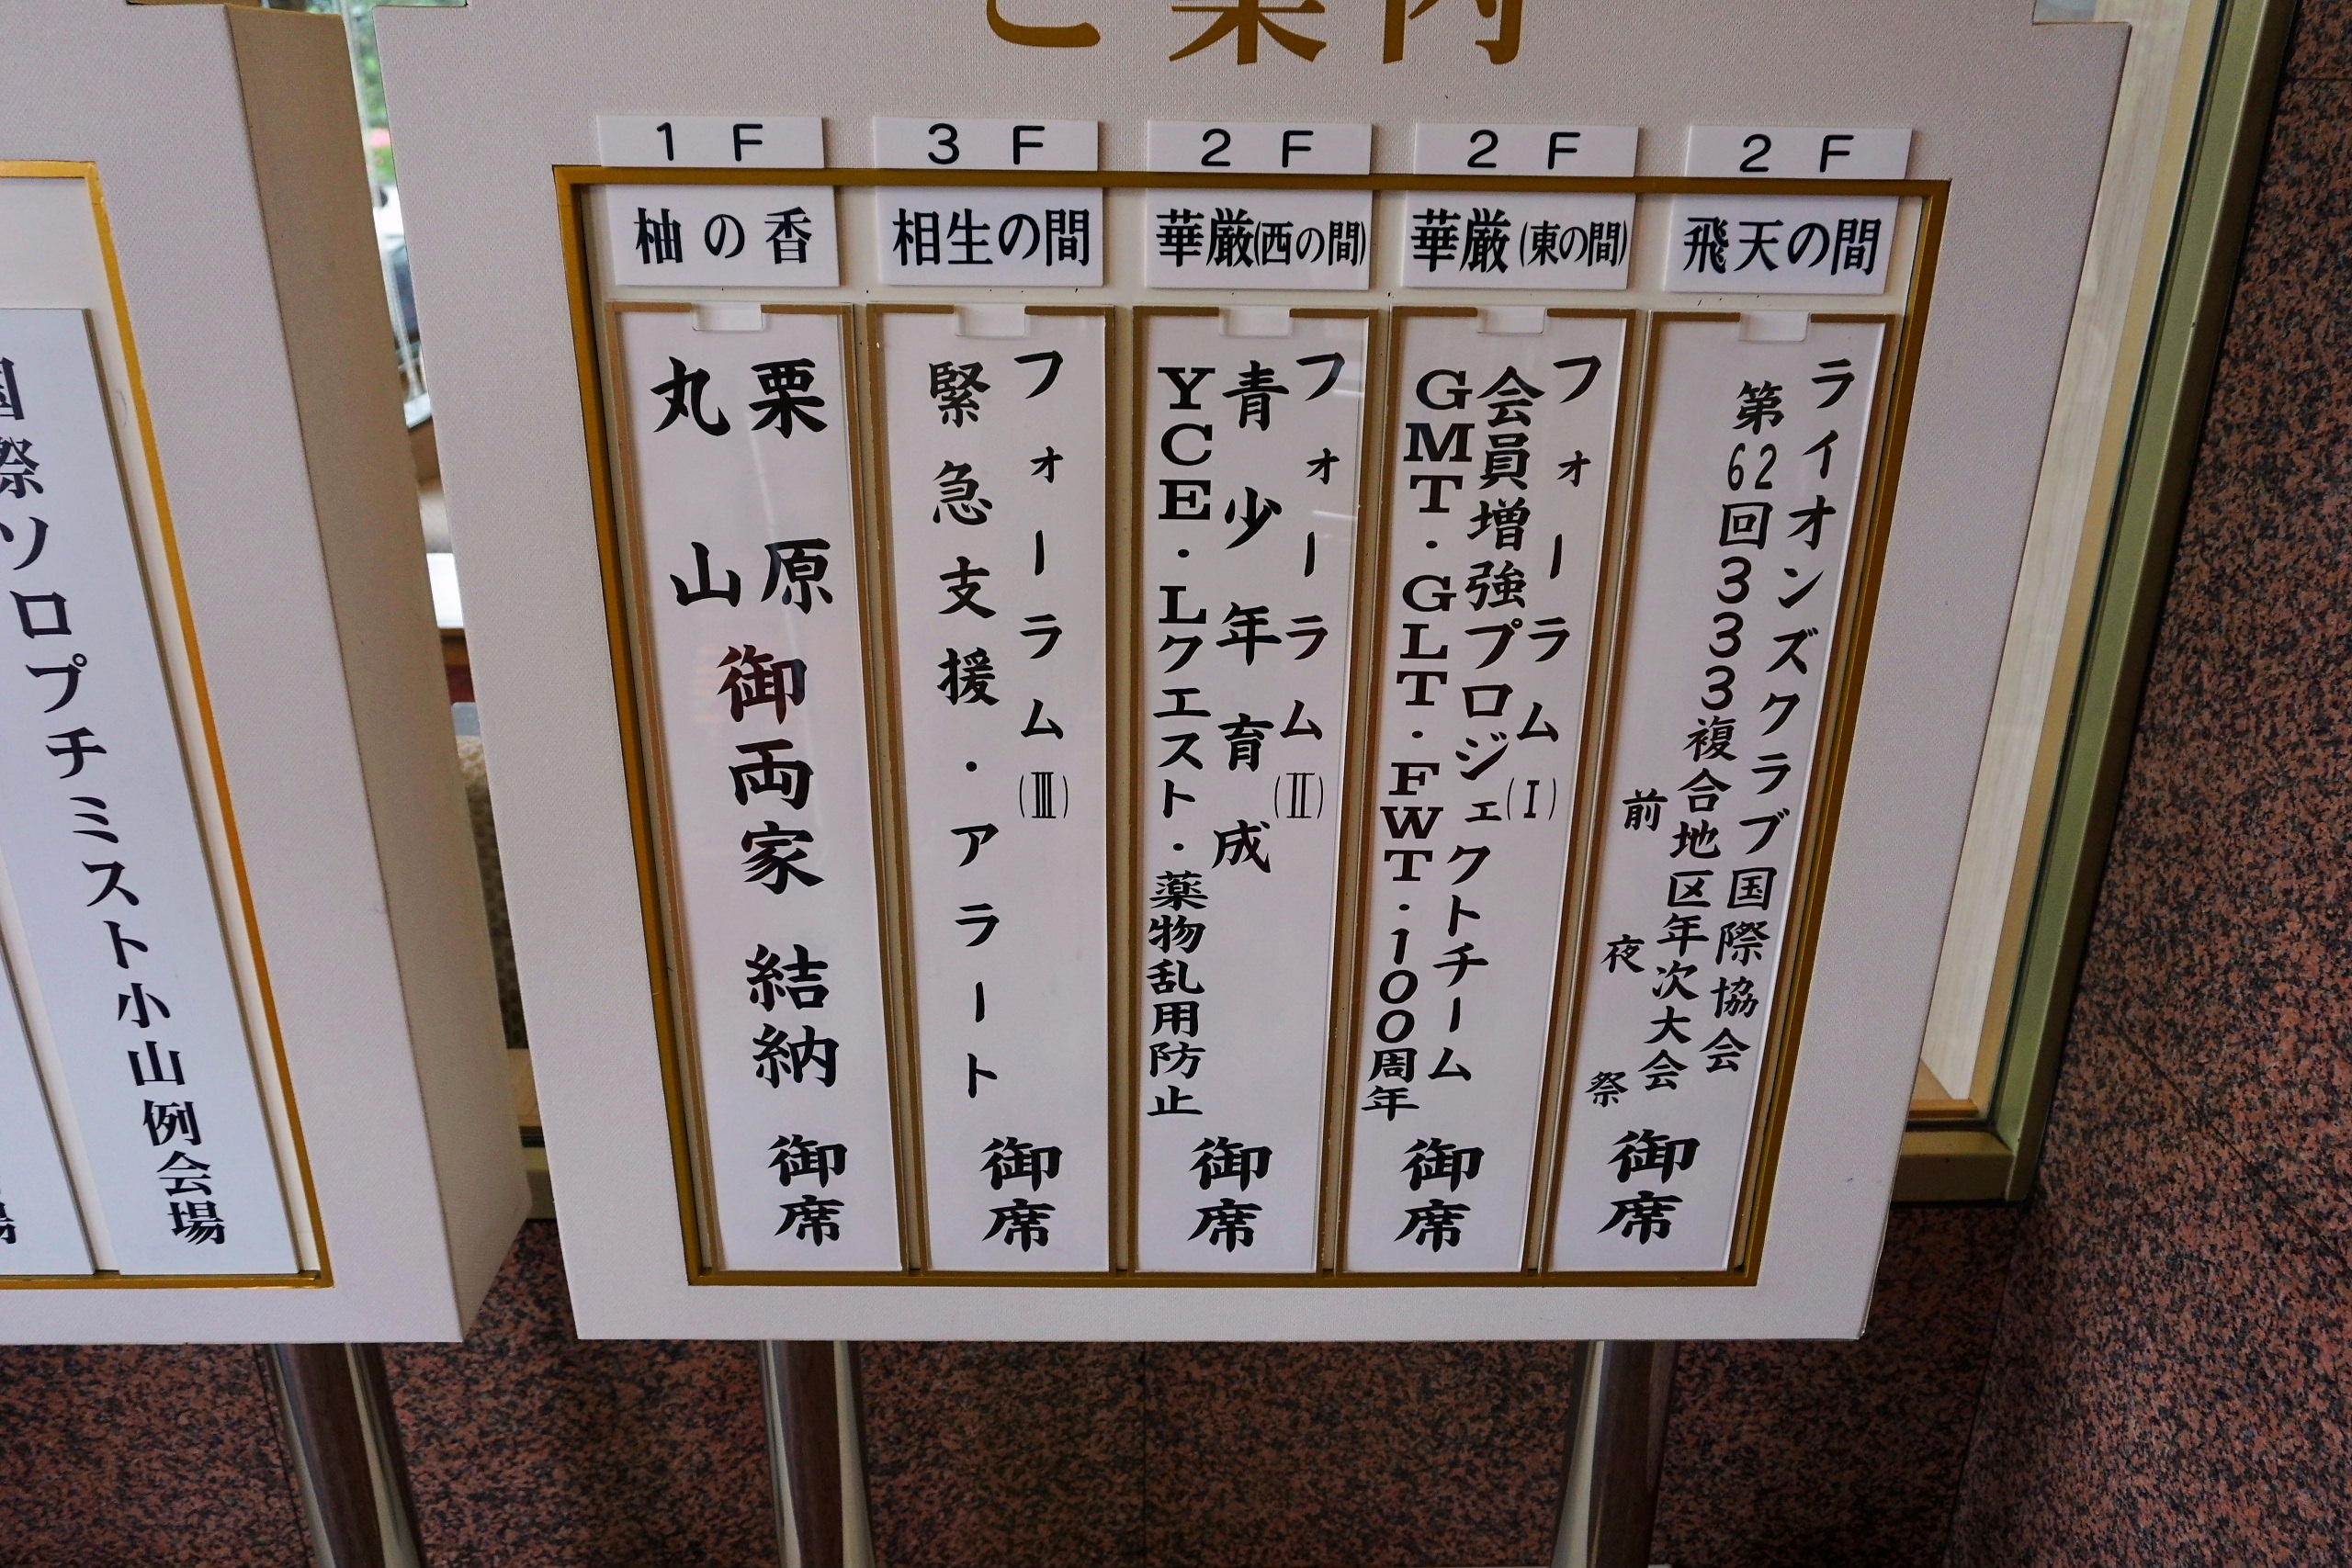 ご案内
2F
飛天の間
ライオンズクラブ国際協会
第62回333複合地区年次大会
前夜祭
御席
2F
華厳(東の間)
フォーラム(Ⅰ)
会員増強プロジェクトチーム
GMT・GLT・FWT・100周年
御席
2F
華厳(西の間)
フォーラム(Ⅱ)
青少年育成
YCE・Lクエスト・薬物乱用防止
御席
3F
相生の間
フォーラム(Ⅲ)
緊急支援・アラート
御席
1F
柚の香
栗原
丸山
御両家 結納
御席
国際ソロプチミスト小山例会場
場